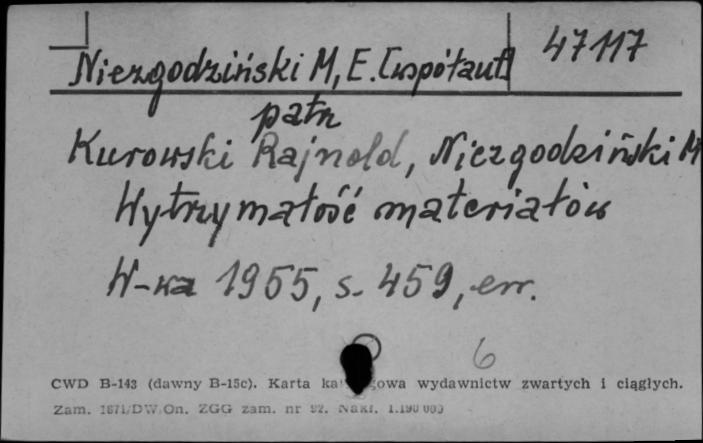 Niezgodziński M, E. [współaut]
47117
patrz
Kurowski Rajnold, Niezgodziński M
Wytrzymałość materiałów
W-wa 1955, s. 459, err.
6
CWD B-143 (dawny B-15c). Karta ka owa wydawnictw zwartych i ciągłych.
Zam. 1871/DW/On. ZGG zam. nr 92. Nakł. 1.190 000